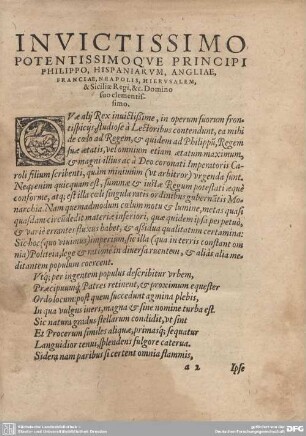 INVICTISSIMO
POTENTISSIMOQVE PRINCIPI
PHILIPPO, HISPANIARVM, ANGLIAE,
FRANCIAE, NEAPOLIS, HIERVSALEM,
& Siciliæ Regi, &c. Domino
suo clementis-
simo.
QVæ alij Rex inuictissime, in operum suorum fron-
tispicijs studiose à Lectoribus contendunt, ea mihi
de cœlo ad Regem, & quidem ad Philippũ, Regem
suæ ætatis, vel omnium etiam ætatum maximum,
& magni illius ac à Deo coronati Imperatoris Ca-
roli filium scribenti, quàm minimùm (vt arbitror) vrgenda sunt.
Neq; enim quicquam est, summæ & vnicæ Regum potestati æquè
conforme, atq; est illa cœli singulis ratio ordinibus gubernãtis Mo-
narchia. Nam quemadmodum cœlum motu & lumine, metas quasi
quasdam circũdedit materiæ inferiori, quæ quidem ipsa perpetuò,
& variè errantes fluxus habet, & assidua qualitatum certamina:
Sic hoc (quo viuimus) imperium, sic illa (qua in terris constant om
nia) Politeia, lege & ratione in diuersa ruentem, & alias alia me-
ditantem populum coercent.
Vtq; per ingentem populus describitur vrbem,
Præcipuumq́; Patres retinent, & proximum equester
Ordo locum: post quem succedunt agmina plebis,
In qua vulgus iners, magna & sine nomine turba est.
Sic natura gradus stellarum condidit, vt sint
Et Procerum similes aliquæ, primasq́; sequatur
Languidior cœtus, splendens fulgore caterua.
Sidera nam paribus si certent omnia flammis,
a 2 Ipse